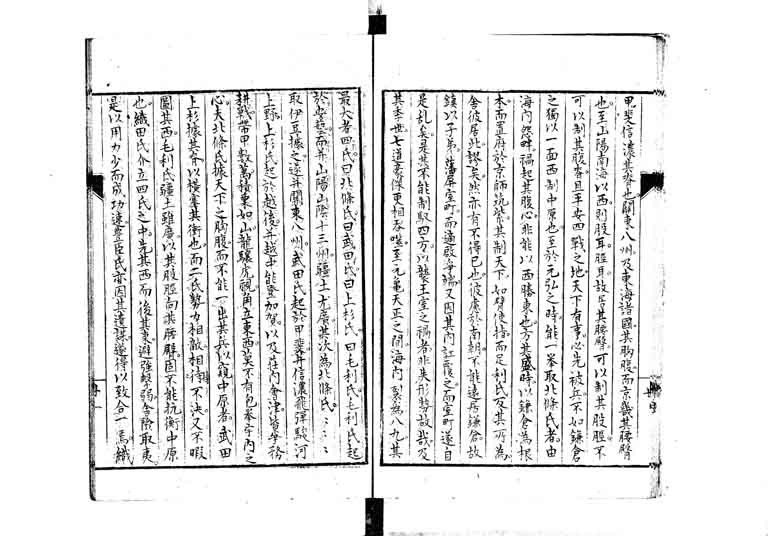 甲斐信濃其脊也關東八州及東海諸國其胸腹而京畿其腰臀
也至山陽南海以西則股耳脛耳故居其腰臀可以制其股脛不
可以制其腹脊且平安四戰之地天下有事心先被兵不如鎌倉
之獨以一面西制中原也至於元弘之時能一舉取北條氏者由
海內怨畔禍起其腹心非能以西勝東也方其盛時以鎌倉為根
本而置府於京師筑紫其制天下如臂使指而足利氏及其所為
鎮以子弟藩屏室町而適啟爭端又因其內訌
舍彼居此謬矣然亦有不得已也彼慮於南朝不能遠居鎌倉故
是乱矣是其不能制馭四方以襲王室之禍者非失形勢故哉及
其季世七道豪傑更相吞噬至元龜天正之間海內裂為八九其
最大者四氏曰北條氏曰武田氏曰上杉氏曰毛利氏毛利氏起
於安藝而并山陽山陰十三州疆土尤廣其次為北條氏
取伊豆據之遂并關東八州武田氏起於甲斐并信濃飛彈駿河
上野上杉氏起於越後并越中能登加賀以及莊內會津皆務
耕戰帶甲數萬積粟如山龍驤虎視角立東西莫不有包舉宇內之
心夫北條氏據天下之胸腹而不能一出其兵以窺中原者武田
上杉據其脊以橫其衝也而二氏勢力相敵相待不決又不暇
圖其西毛利氏疆土雖廣以其股脛向其腰臀固不能抗衡中原
也織田氏介立四氏之中先其西而後其東避強擊弱舍險取夷
是以用力少而成功速豐臣氏亦因其遺謀遂得以致合一焉織